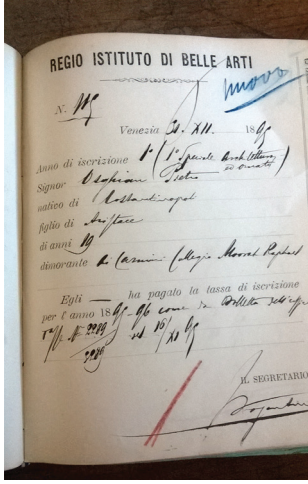 REGIO ISTITUTO DI BELLE ARTI
nuovo
N. 115
Venezia 21. XII. 1895
Anno di iscrizione 1° (1° Speciale Architettura
ed ornato
Signor Osghian Pietro
nativo di Costantinopol
figlio di Aristace
di anni 19
dimorante a Carmini Collegio Moorat Raphael
Egli — ha pagato la tassa di iscrizione
per l'anno 1895-96 come da Bolletta dell'
N. 2289 16/XI 95
2286
IL SEGRETARIO